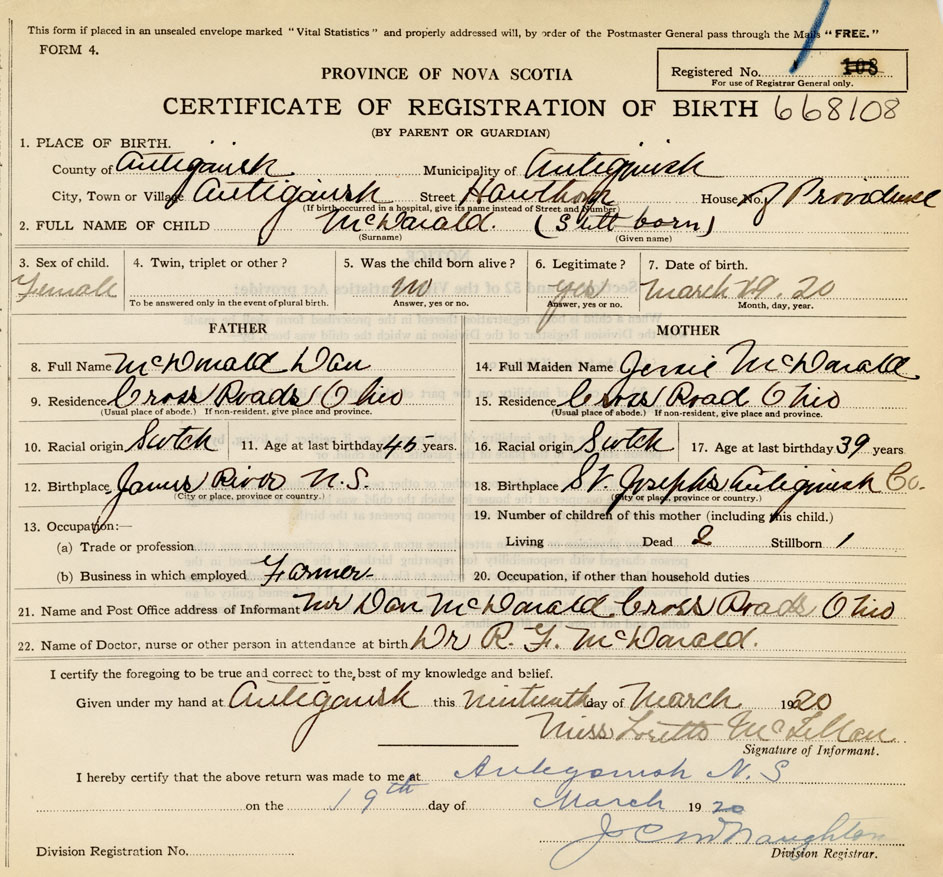 This form if placed in an unsealed envelope marked "Vital Statistics" and properly addressed will, by order of the Postmaster General pass through the Mails "FREE."
FORM 4.
PROVINCE OF NOVA SCOTIA
Registered No. 108
For use of Registrar General only.
CERTIFICATE OF REGISTRATION OF BIRTH 668108
(BY PARENT OR GUARDIAN)
1. PLACE OF BIRTH.
County of Antigonish Municipality of Antigonish
City, Town or Village Antigonish Street Hawthorn House No. J Providence
(If birth occurred in a hospital, give its name instead of Street and Number)
2. FULL NAME OF CHILD McDonald. (Still born)
(Surname) (Given name)
3. Sex of child. 4. Twin, triplet or other ? 5. Was the child born alive ? 6. Legitimate ? 7. Date of birth.
Female no yes March 19. 20
To be answered only in the event of plural birth. Answer, yes or no. Answer, yes or no. Month, day, year.
FATHER MOTHER
8. Full Name McDonald Dan 14. Full Maiden Name Jessie McDonald
9. Residence Cross Roads Ohio 15. Residence Cross Road Ohio
(Usual place of abode.) If non-resident, give place and province. (Usual place of abode.) If non-resident, give place and province.
10. Racial origin Scotch 11. Age at last birthday 45 years. 16. Racial origin Scotch 17. Age at last birthday 39 years
12. Birthplace James River N.S. 18. Birthplace St. Josephs Antigonish Co.
(City or place, province or country.) (City or place, province or country.)
13. Occupation:— 19. Number of children of this mother (including this child.)
(a) Trade or profession Living Dead 2 Stillborn 1
(b) Business in which employed Farmer 20. Occupation, if other than household duties
21. Name and Post Office address of Informant Mr Dan McDonald Cross Roads Ohio
22. Name of Doctor, nurse or other person in attendance at birth Dr R. F. McDonald.
I certify the foregoing to be true and correct to the best of my knowledge and belief.
Given under my hand at Antigonish this ninteenth day of March 1920
Miss Loretto McLellan
Signature of Informant.
I hereby certify that the above return was made to me at Antigonish N.S
on the 19th day of March 19 20
J C McNaughton
Division Registration No. Division Registrar.